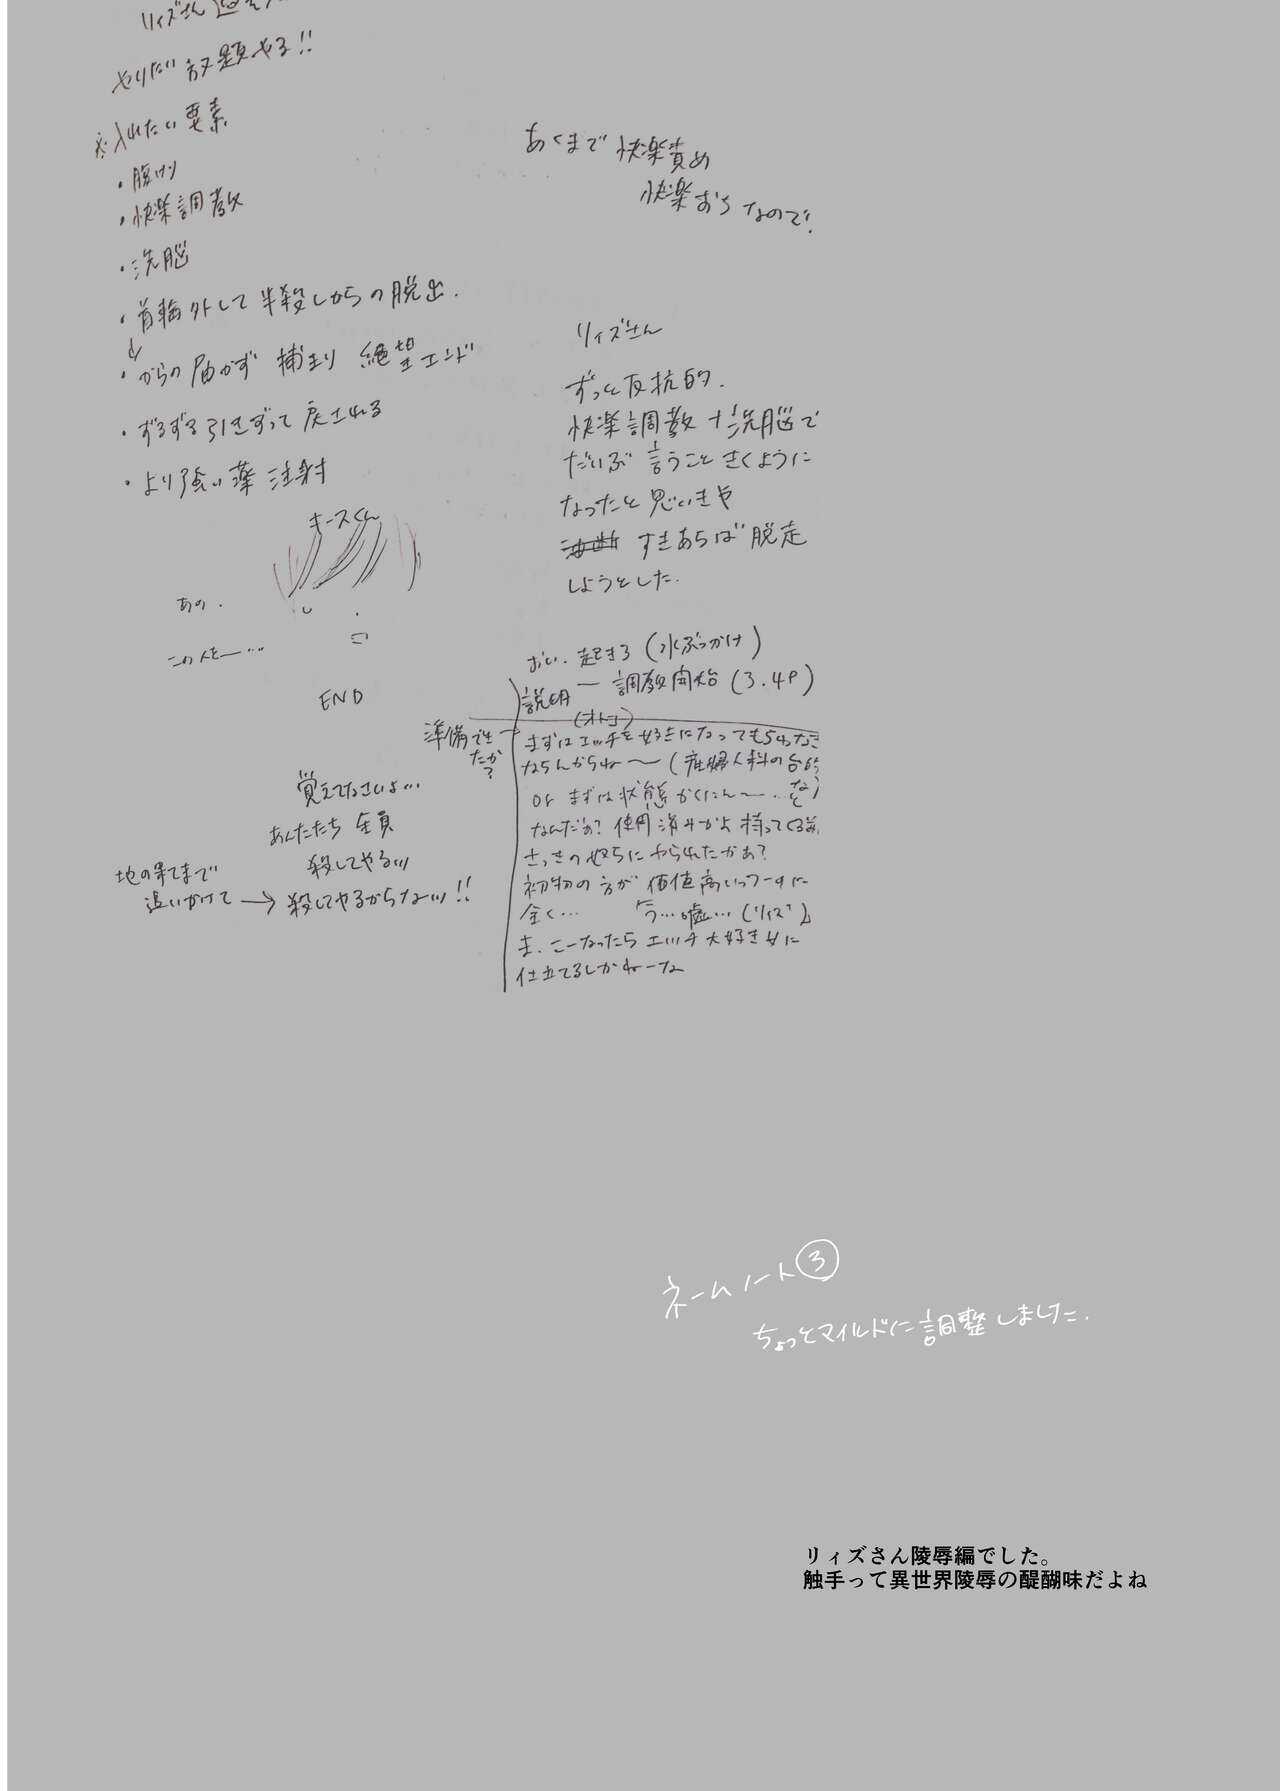 リィズさん
やりたい放題やる!!
※入れたい要素
・腹パン
・快楽調教
・洗脳
・首輪外して半殺しからの脱出.
↓
・からの届かず 捕まり 絶望エンド
・ずるずる引きずって戻される
・より強い薬注射
キースくん
あの.
この人を—…
END
あくまで快楽責め
快楽おちなので!
リィズさん
ずっと反抗的.
快楽調教+洗脳で
だいぶ言うこときくように
なったと思いきや
すきあらば脱走
しようとした.
おい.起きろ(水ぶっかけ)
説明—調教開始(3.4P)
準備できたか?
(オトコ)
まずはエッチを好きになってもらわなき
ならんからね〜(産婦人科の台的
or まずは状態かくにん〜. など)
なんだぁ?使用済みかよ 持ってくる前
さっきの奴らにヤられたかぁ?
初物の方が価値高いっつーのに
全く… 「う…嘘…(リィズ)」
ま.こーなったらエッチ大好き女に
仕立てるしかねーな
覚えてなさいよ…
あんたたち全員
殺してやるッ
地の果てまで
追いかけて→殺してやるからなッ!!
ネームノート③
ちょっとマイルドに調整しました.
リィズさん陵辱編でした。
触手って異世界陵辱の醍醐味だよね